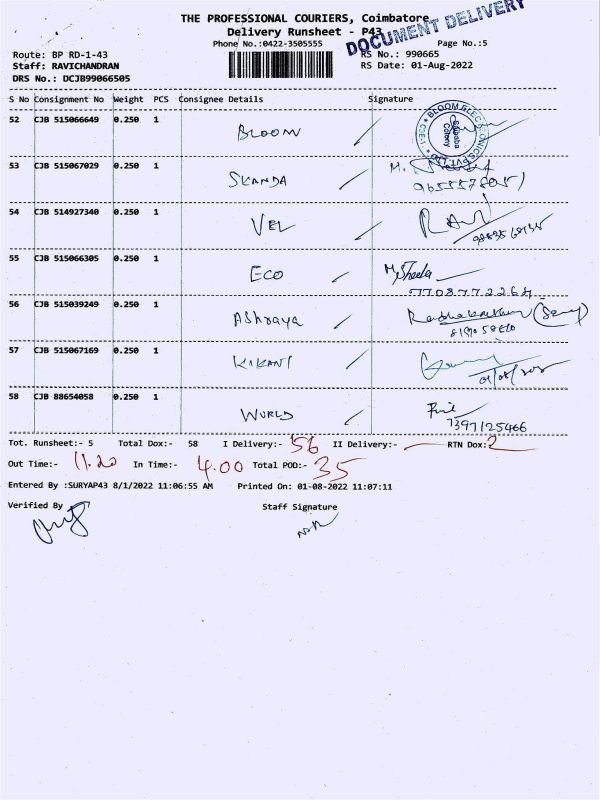 THE PROFESSIONAL COURIERS, Coimbatore
Delivery Runsheet - P43
DOCUMENT DELIVERY
Phone No.:0422-3505555 Page No.:5
Route: BP RD-1-43 RS No.: 990665
Staff: RAVICHANDRAN RS Date: 01-Aug-2022
DRS No.: DCJB99066505
S No Consignment No Weight PCS Consignee Details Signature
52 CJB 515066649 0.250 1 BLOOM
BLOOM ELECTRONICS PVT LTD Saibaba Colony CBE-11
53 CJB 515067029 0.250 1 SKANDA M.
54 CJB 514927340 0.250 1 VEL RAVI
55 CJB 515066305 0.250 1 ECO M. Sheela
7708772264
56 CJB 515039249 0.250 1 Ashraya
57 CJB 515067169 0.250 1 KIKANI
58 CJB 88654058 0.250 1 WORLD
7397125466
Tot. Runsheet:- 5 Total Dox:- 58 I Delivery:- 56 II Delivery:- — RTN Dox:- 2
Out Time:- 11.20 In Time:- 4.00 Total POD:- 35
Entered By :SURYAP43 8/1/2022 11:06:55 AM Printed On: 01-08-2022 11:07:11
Verified By Staff Signature